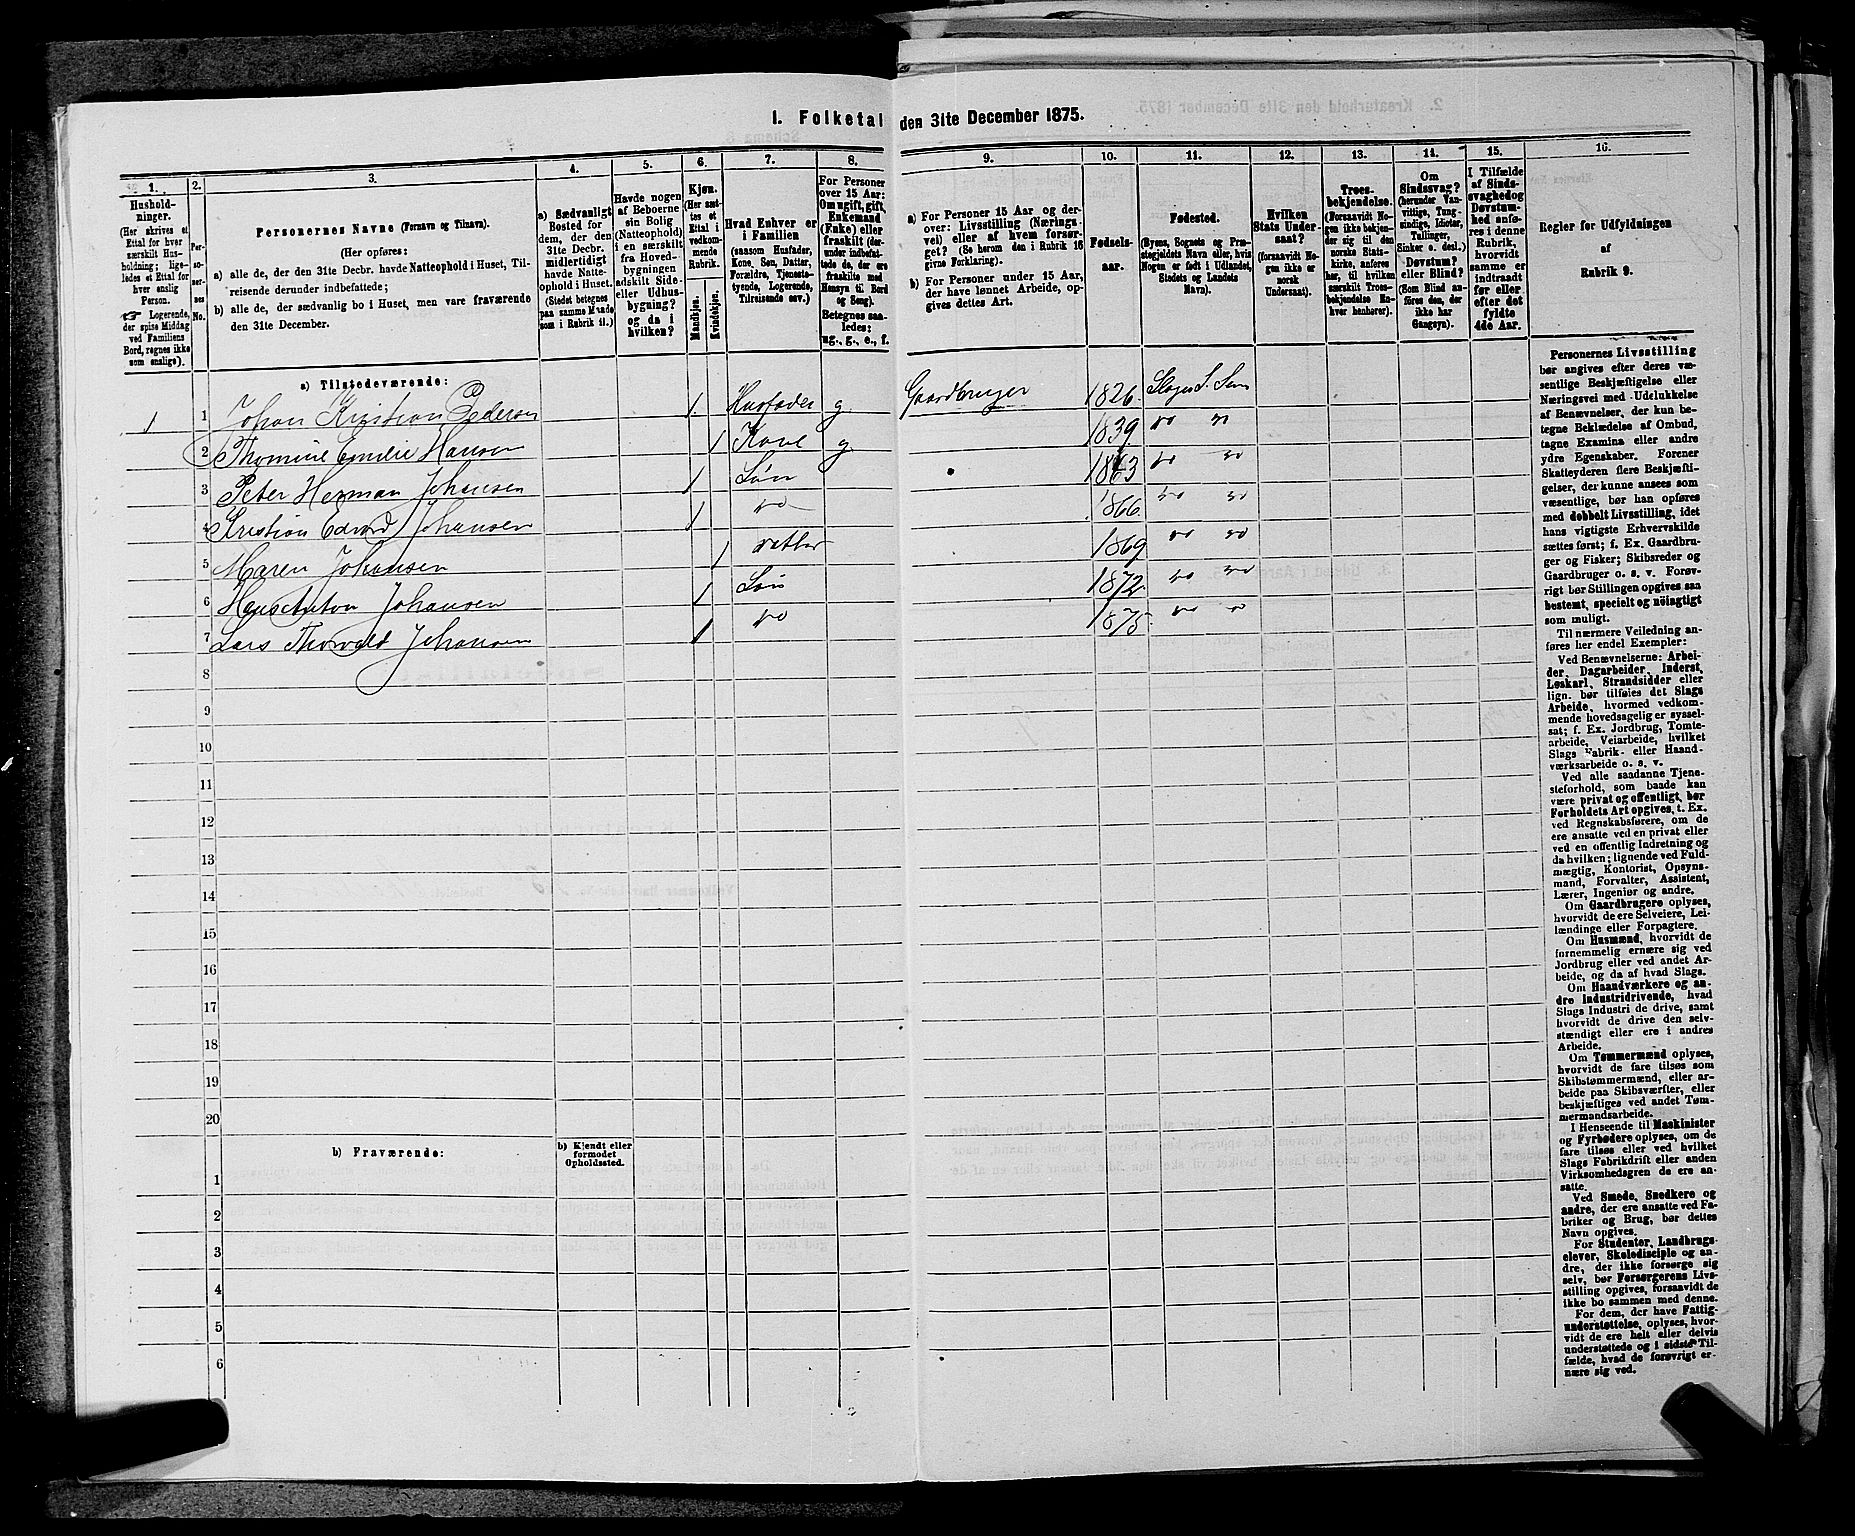 I. Folketal den 31te December 1875.
1. 2. 3. 4. 5. 6. 7. 8. 9. 10. 11. 12. 13. 14. 15. 16.
Hushold-
ninger.
(Her skrives et
Ettal for hver
særskilt Hus-
holdning; lige-
ledes et Ettal for
hver enslig
Person.
☞ Logerende,
der spise Middag
ved Familiens
Bord, regnes ikke
som enslige).
Per-
so-
ner-
nes
No.
Personernes Navne (Fornavn og Tilnavn).
(Her opføres:
a) alle de, der den 31te Decbr. havde Natteophold i Huset, Til-
reisende derunder indbefattede;
b) alle de, der sædvanlig bo i Huset, men vare fraværende
den 31te December.
a) Sædvanligt
Bosted for
dem, der den
31te Decbr.
midlertidigt
havde Natte-
ophold i Huset.
(Stedet betegnes
paa samme Maade
som i Rubrik 11.)
Havde nogen
af Beboerne
sin Bolig
(Natteophold)
i en særskilt
fra Hoved-
bygningen
adskilt Side-
eller Udhus-
bygning?
og da i
hvilken?
Kjøn.
(Her sæt-
tes et
Ettal i
vedkom-
mende
Rubrik.
Mandkjøn.
Kvindekjøn.
Hvad Enhver er
i Familien
(saasom Husfader,
Kone, Søn, Datter,
Forældre, Tjeneste-
tyende, Logerende,
Tilreisende osv.)
For Personer
over 15 Aar:
Om ugift, gift,
Enkemand
(Enke) eller
fraskilt (der-
under indbefat-
tede de, der ere
fraskilte med
Hensyn til Bord
og Seng).
Betegnes saa-
ledes:
ug., g., e., f.
a) For Personer 15 Aar og der-
over: Livsstilling (Nærings-
vei) eller af hvem forsør-
get? (Se herom den i Rubrik 16
givne Forklaring).
b) For Personer under 15 Aar,
der have lønnet Arbeide, op-
gives dettes Art.
Fødsels-
aar.
Fødested.
(Byens, Sognets og Præ-
stegjeldets Navn eller, hvis
Nogen er født i Udlandet,
Stedets og Landets
Navn).
Hvilken
Stats Under-
saat?
(forsaavidt No-
gen ikke er
norsk
Undersaat).
Troes-
bekjendelse.
(Forsaavidt No-
gen ikke bekjen-
der sig til den
norske Stats-
kirke, anføres
her, til hvilken
særskilt Troes-
bekjendelse En-
hver henhører).
Om
Sindssvag?
(herunder Van-
vittige, Tung-
sindige, Idioter,
Tullinger,
Sinker o. desl.)
Døvstum?
eller Blind?
(Som Blind an-
føres den, der
ikke har
Gangsyn).
I Tilfælde
af Sinds-
svaghed og
Døvstum-
hed anfø-
res i denne
Rubrik,
hvorvidt
samme er
indtraadt
før eller
efter det
fyldte
4de Aar.
Regler for Udfyldningen
af
Rubrik 9.
a) Tilstedeværende:
1 1 Johan Kristian Pedersen 1. Husfader g Gaardbruger 1826. Slagns S.
2 Thomine Emilie Hansen 1 Kone g 1839 do do
3 Peter Herman Johansen 1 Søn 1863 do do
4 Kristian Edvard Johansen 1 do 1866 do do
5 Maren Johansen 1 Datter 1869 do do
6 Hans Anton Johansen 1 Søn 1872 do do
7 Lars Thorvald Johansen 1 do 1875 do do
8
9
10
11
12
13
14
15
16
17
18
19
20
b) Fraværende:
b) Kjendt eller
formodet
Opholdssted.
1
2
3
4
5
6
Personernes Livsstilling
bør angives efter deres væ-
sentlige Beskjæftigelse eller
Næringsvei med Udelukkelse
af Benævnelser, der kun be-
tegne Beklædelse af Ombud,
tagne Examina eller andre
ydre Egenskaber. Forener
Skatteyderen flere Beskjæfti-
gelser, der kunne ansees som
væsentlige, bør han opføres
med dobbelt Livsstilling, idet
hans vigtigste Erhvervskilde
sættes først; f. Ex. Gaardbru-
ger og Fisker; Skibsreder og
Gaardbruger o. s. v. Forøv-
rigt bør Stillingen opgives saa
bestemt, specielt og nöiagtigt
som muligt.
Til nærmere Veiledning an-
føres her endel Exempler:
Ved Benævnelserne: Arbei-
der, Dagarbeider, Inderst,
Løskarl, Strandsidder eller
lign. bør tilføies det Slags
Arbeide, hvormed vedkom-
mende hovedsagelig er syssel-
sat; f. Ex. Jordbrug, Tomte-
arbeide, Veiarbeide, hvilket
Slags Fabrik- eller Haand-
værksarbeide o. s. v.
Ved alle saadanne Tjene-
steforhold, som baade kan
være privat og offentligt, bør
Forholdets Art opgives, t. Ex.
ved Regnskabsførere, om de
ere ansatte ved en privat eller
ved en offentlig Indretning og
da hvilken; lignende ved Fuld-
mægtig, Kontorist, Opsyns-
mand, Forvalter, Assistent,
Lærer, Ingeniør og andre.
Om Gaardbrugere oplyses,
hvorvidt de ere Selveiere, Lei-
lændinge eller Forpagtere.
Om Husmænd, hvorvidt de
fornemmelig ernære sig ved
Jordbrug eller ved andet Ar-
beide, og da af hvad Slags.
Om Haandværkere og an-
dre Industridrivende, hvad
Slags Industri de drive, samt
hvorvidt de drive den selv-
stændigt eller ere i andres
Arbeide.
Om Tømmermænd oplyses,
hvorvidt de fare tilsøs som
Skibstømmermænd, eller ar-
beide paa Skibsværfter, eller
beskjæftiges ved andet Tøm-
mermandsarbeide.
I Henseende til Maskinister
og Fyrbødere oplyses, om de
fare tilsøs eller ved hvilket
Slags Fabrikdrift eller anden
Virksomhedsgren de ere an-
satte.
Ved Smede, Snedkere og
andre, der ere ansatte ved Fa-
briker og Brug, bør dettes
Navn opgives.
For Studenter, Landbrugs-
elever, Skoledisciple og an-
dre, der ikke forsørge sig
selv, bør Forsørgerens Livs-
stilling opgives, forsaavidt de
ikke bo sammen med denne.
For dem, der have Fattig-
understøttelse, oplyses, hvor-
vidt de ere helt eller delvis
understøttede og i sidste Til-
fælde, hvad de forøvrigt er-
nære sig ved.